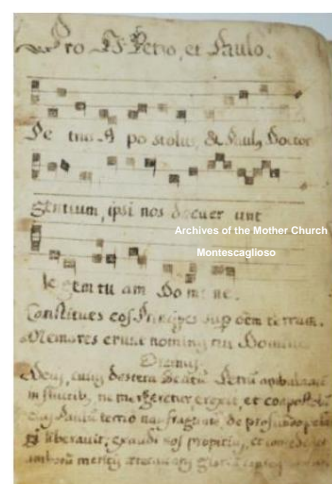 Pro SS. Petro, et Paulo.
Pe trus A po stolus, & Paulus Doctor
gentium, ipsi nos docuer unt
Archives of the Mother Church
Montescaglioso
legem tu am Do mi ne.
Constitues eos Principes sup oem terram.
Memores erunt nominis tui Domine.
Oremus.
Deus, cuius dextera Beatum Petrum ambulantem
in fluctib, ne mergeretur, erexit, et coapostolum
eius Paulum tertio naufragantem de profundo pelagi
liberavit, exaudi nos propitius, et concede, ut
amborum meritis gloriam